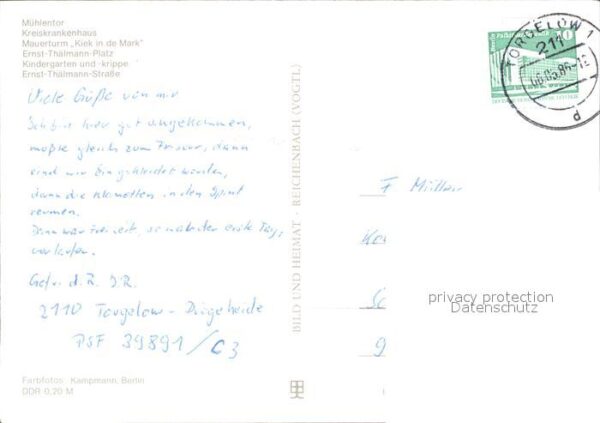 Mühlentor
Kreiskrankenhaus
Mauerturm „Kiek in de Mark"
Ernst-Thälmann-Platz
Kindergarten und -krippe
Ernst-Thälmann-Straße
Viele Grüße von mir
Ich bin hier gut angekommen,
mußte gleich zum Friseur, dann
sind wir Eingekleidet worden,
dann die Klamotten in den Spint
reumen.
Dann war Freizeit, so ist der erste Tag,
verlaufen.
Gefr. d. R.
2110 Torgelow - Drögeheide
PSF 39891/C3
Farbfotos: Kampmann, Berlin
DDR 0,20 M
BILD UND HEIMAT - REICHENBACH (VOGTL)
TORGELOW 1
211
06.05.86-12
d
10
F Müller
privacy protection
Datenschutz